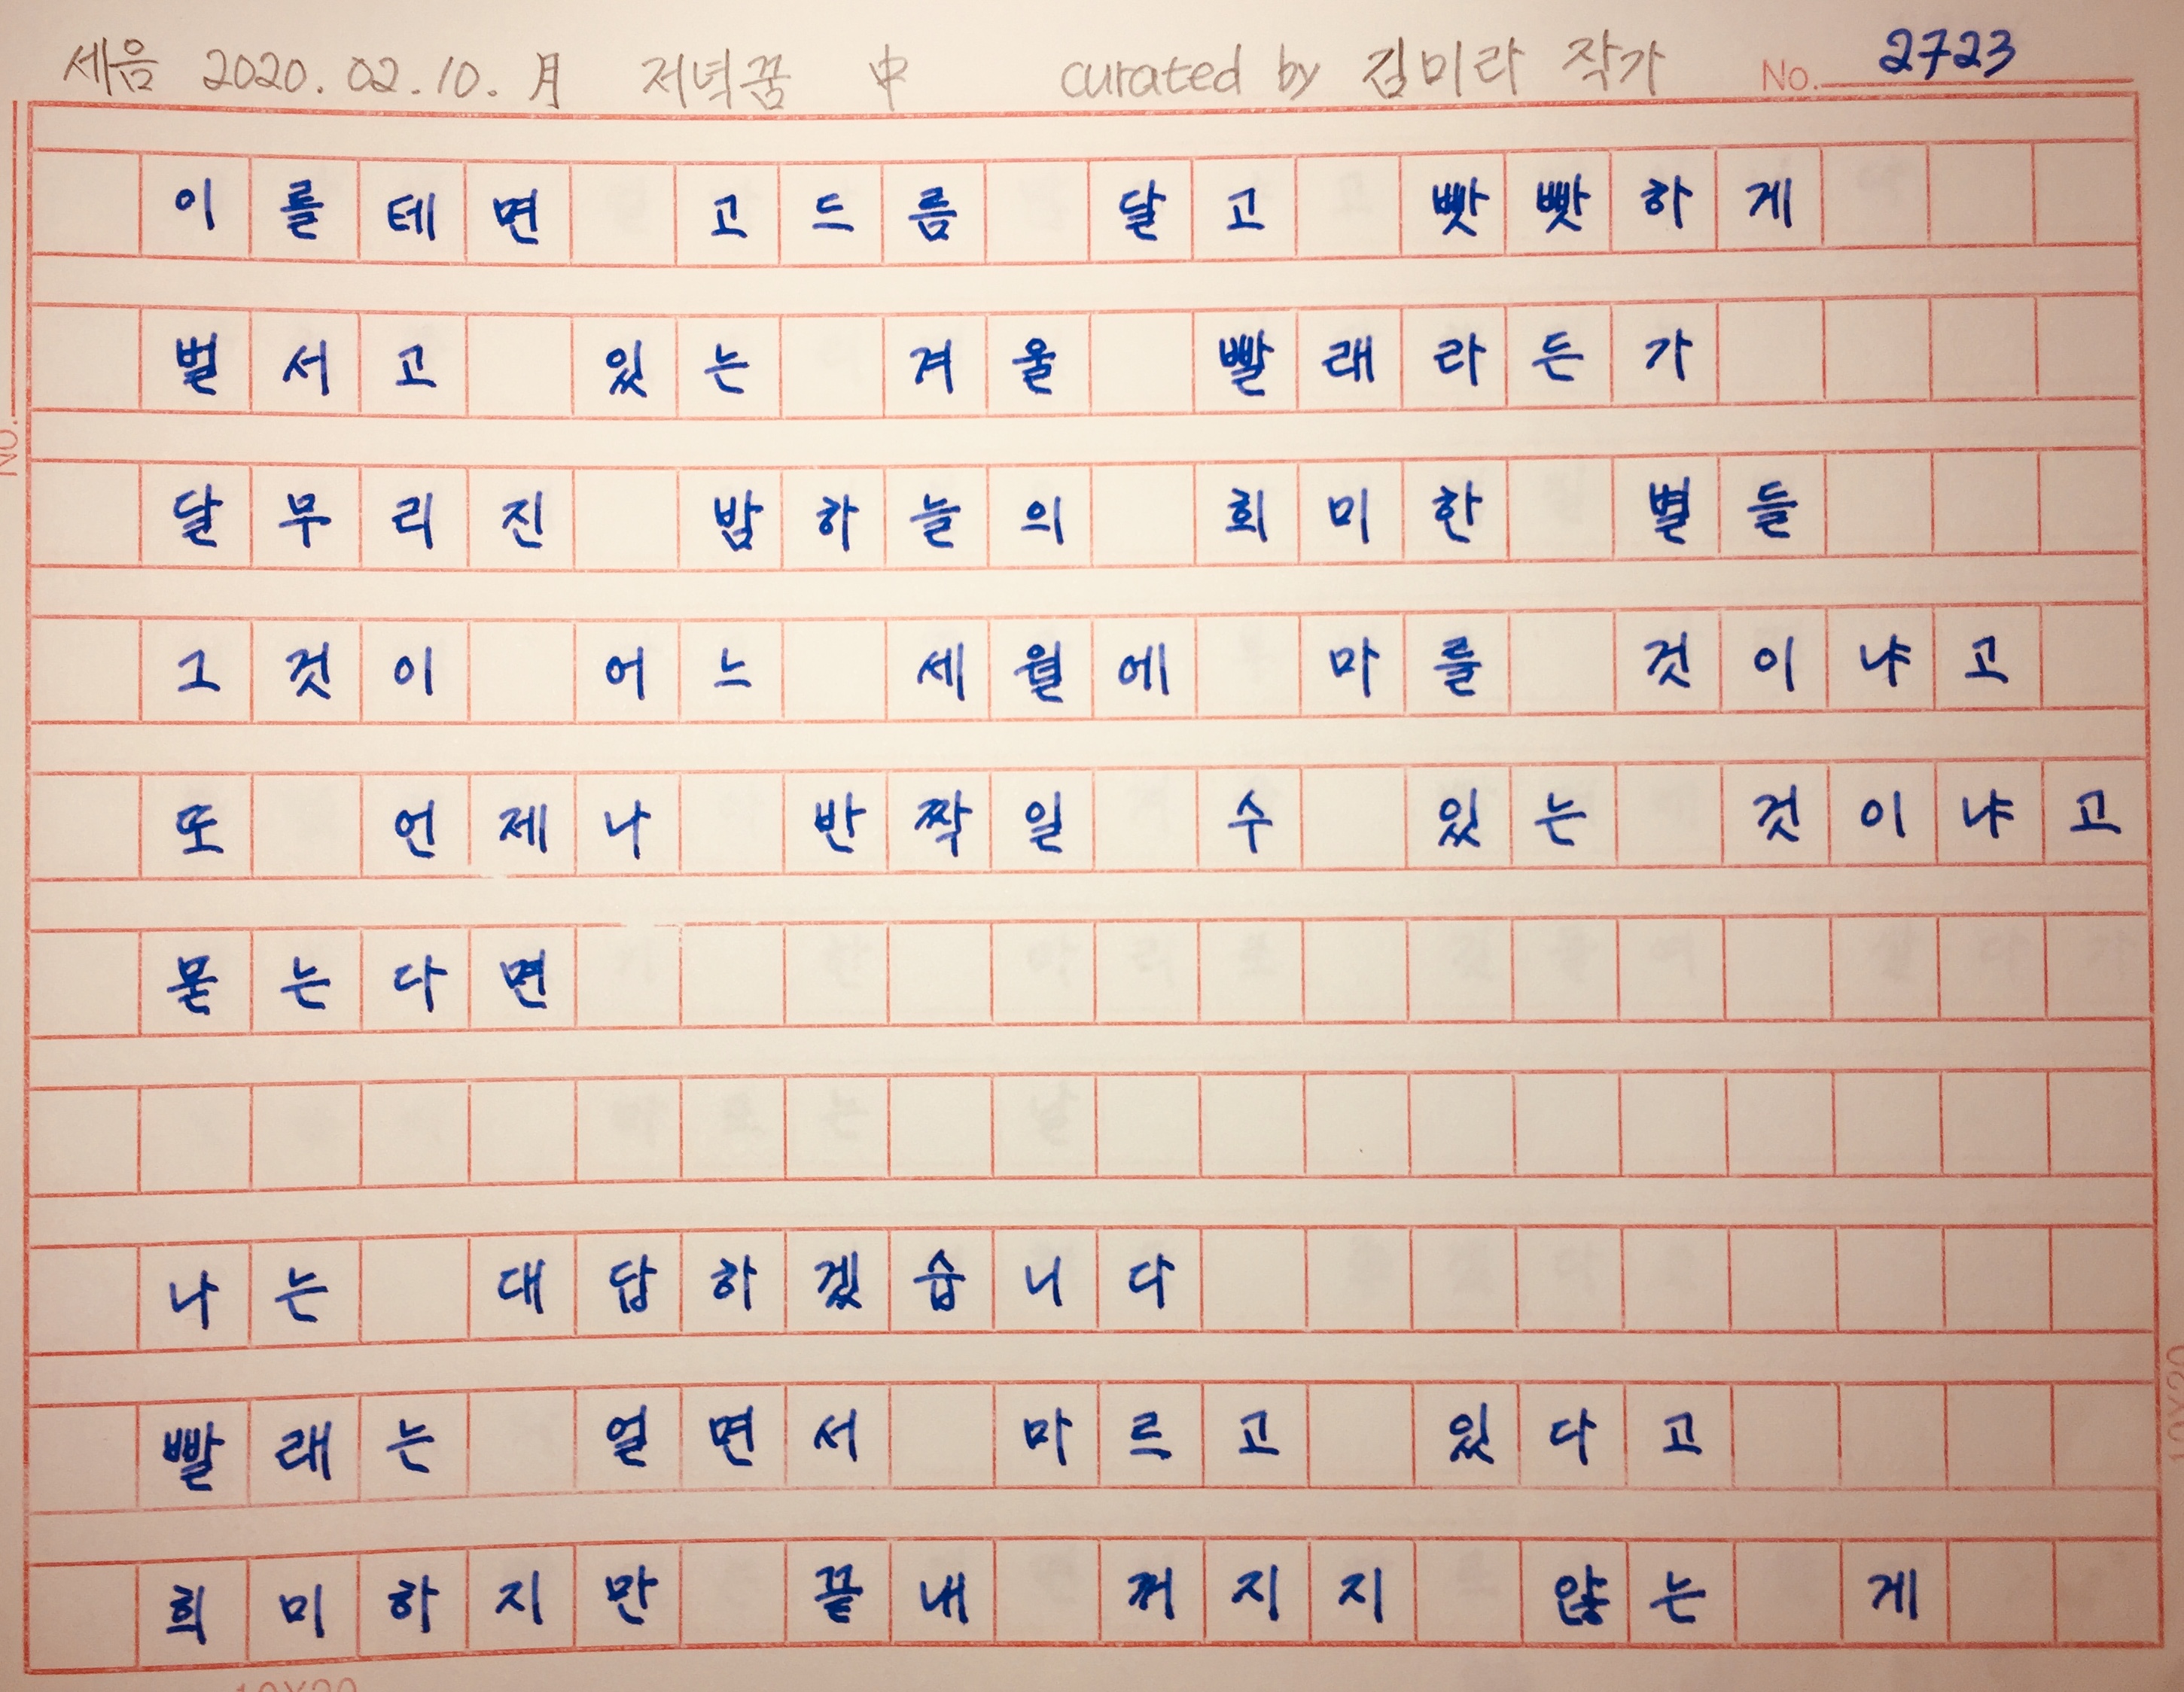 세음 2020.02.10.月 저녁꿈 中 curated by 김미라 작가 No. 2723
이를테면 고드름 달고 빳빳하게
벌서고 있는 겨울 빨래라든가
달무리진 밤하늘의 희미한 별들
그것이 어느 세월에 마를 것이냐고
또 언제나 반짝일 수 있는 것이냐고
묻는다면
나는 대답하겠습니다
빨래는 얼면서 마르고 있다고
희미하지만 끝내 꺼지지 않는 게
NO.
10X20
10X20